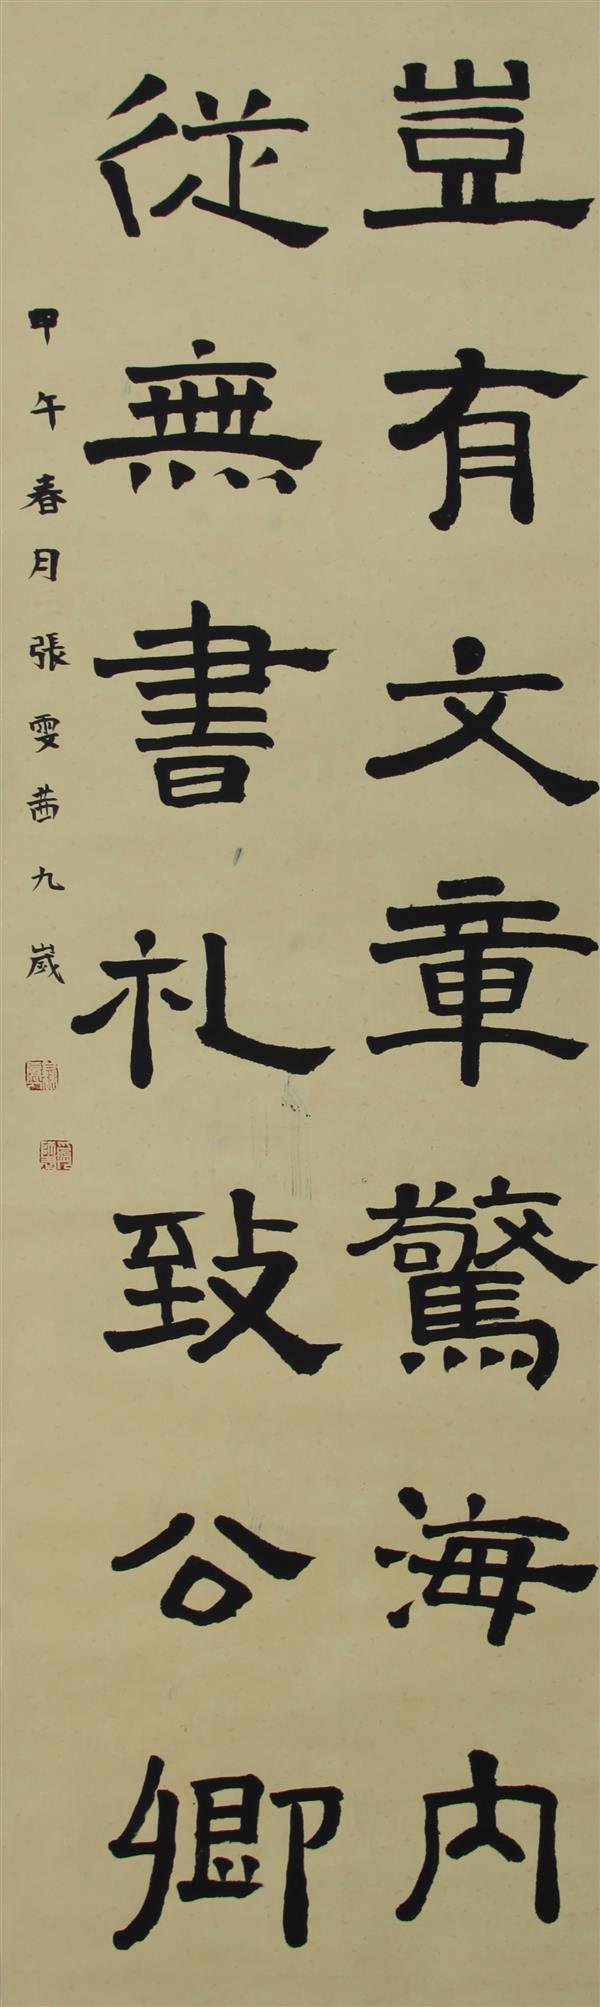 豈有文章驚海內
從無書札致公卿
甲午春月張雯茜九歲